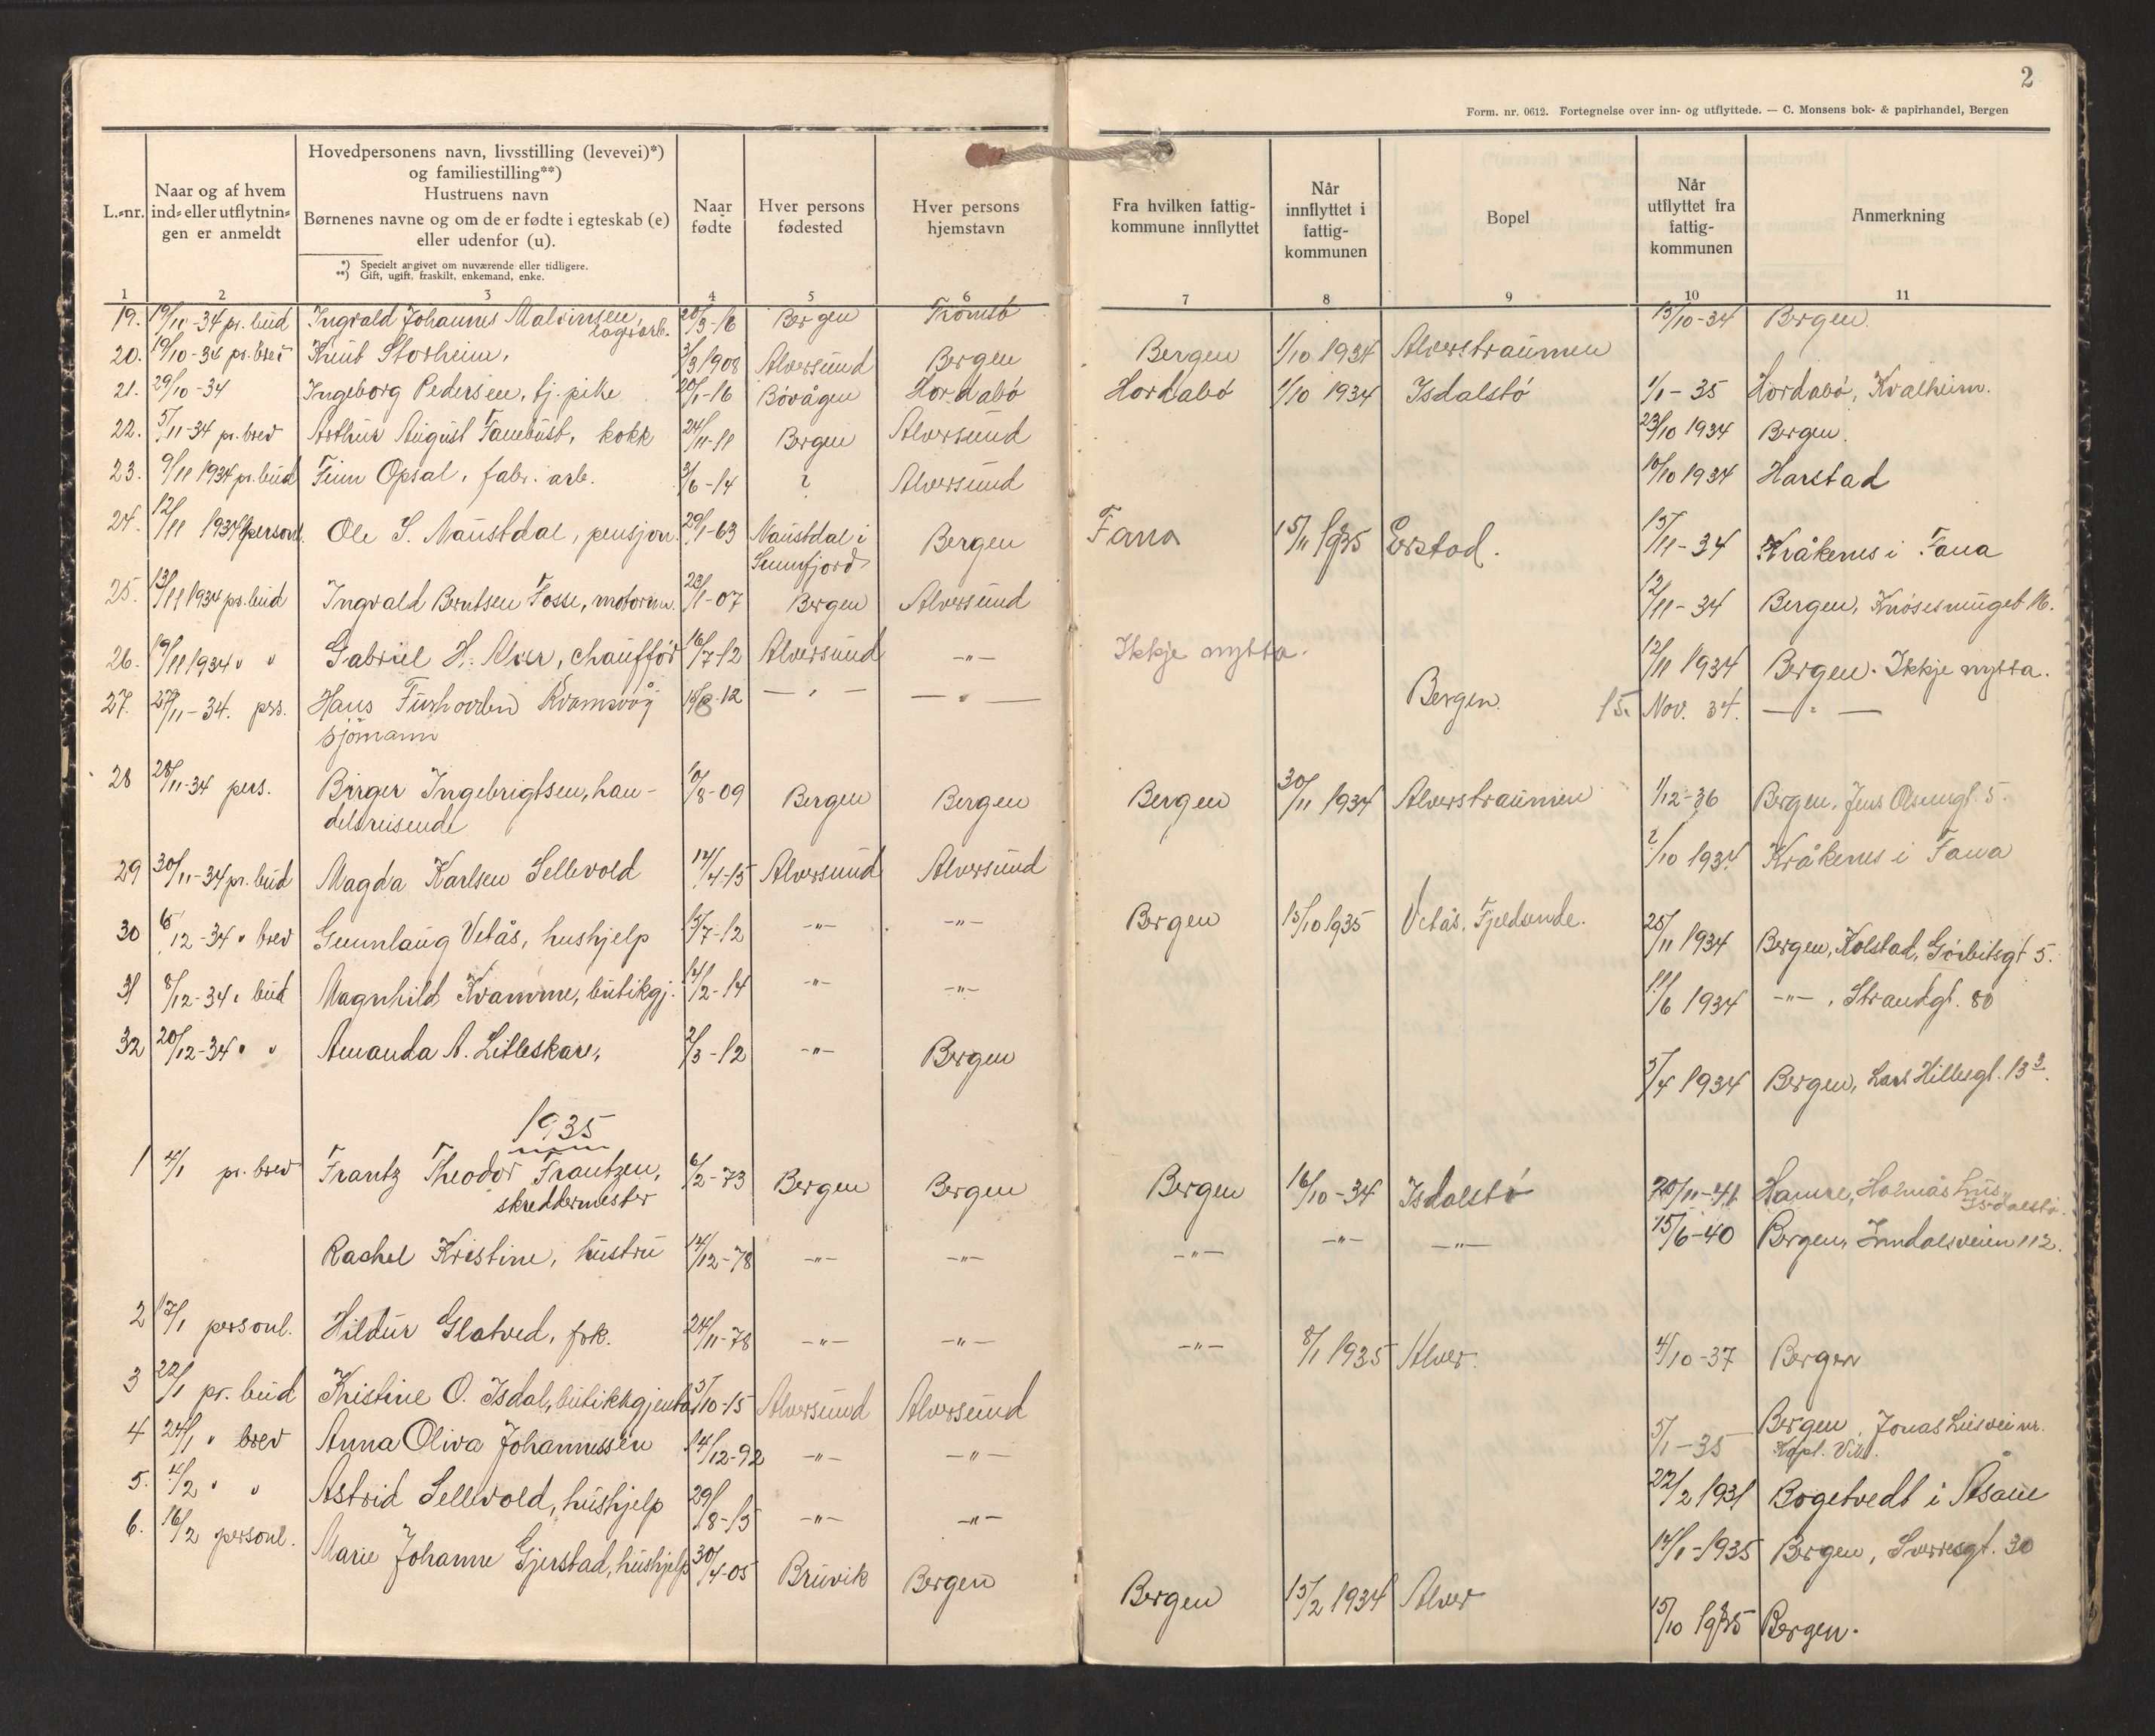 2
Form. nr. 0612. Fortegnelse over inn- og utflyttede. — C. Monsens bok- & papirhandel, Bergen
L.-nr.
Naar og af hvem ind- eller utflytnin-gen er anmeldt
Hovedpersonens navn, livsstilling (levevei)*)
og familiestilling**)
Hustruens navn
Børnenes navne og om de er fødte i egteskab (e)
eller udenfor (u).
*) Specielt angivet om nuværende eller tidligere.
**) Gift, ugift, fraskilt, enkemand, enke.
Naar fødte
Hver persons fødested
Hver persons hjemstavn
Fra hvilken fattig-kommune innflyttet
Når innflyttet i fattig-kommunen
Bopel
Når utflyttet fra fattig-kommunen
Anmerkning
1 2 3 4 5 6 7 8 9 10 11
19. 19/10-34 pr. bud Ingvald Johannes Malvinsen, lagerarb. 20/3-16 Bergen Tromsö 15/10-34 Bergen.
20. 19/10-34 pr. brev Knut Storheim, 3/3 1908 Alversund Bergen Bergen 1/10 1934 Alverstraumen
21. 29/10-34 Ingeborg Pedersen, tj. pike 20/1-16 Bövågen Hordabö Hordabö 1/10 1934 Isdalstö 1/1-35 Hordabö, Kvalheim.
22. 5/11-34 pr. brev Arthur August Tanebust, kokk 24/11-11 Bergen Alversund 23/10 1934 Bergen.
23. 9/11 1934 pr. bud Finn Opsal, fabr. arb. 3/6-14 ? Alversund 10/10 1934 Harstad
24. 12/11 1934 personl. Ole S. Naustdal, pensjon. 29/1-63 Naustdal i Sunnfjord Bergen Fana 15/11 1935 15/11-34 Kråkenes i Fana
25. 13/11 1934 pr. bud Ingvald Berntsen Fosse, motorm. 23/1-07 Bergen Alversund 12/11-34 Bergen, Knösesmuget 16.
26. 19/11 1934 " " Gabriel H. Alver, chaufför 16/7-12 Alversund -"- Ikkje nytta. 12/11 1934 Bergen. Ikkje nytta.
27. 27/11-34. prs. Hans Furhovden Kvamsvåg sjömann 12 — " — — " — Bergen. 15. Nov. 34. — " —
28 28/11-34 pers. Birger Ingebrigtsen, han-
delsreisende 10/8-09 Bergen Bergen Bergen 30/11 1934 Alverstraumen 1/12-36 Bergen, Jens Olsensgt. 5.
29 30/11-34 pr. bud Magda Karlsen Sellevold 14/4-15 Alversund Alversund ?/10 1934 Kråkenes i Fana
30 6/12-34 " brev Gunnlaug Vetås, hushjelp 15/7-12 -"- -"- Bergen 15/10 1935 Vetås, Fjeldsende. 25/11 1934 Bergen, Kolstad, Görbitsgt 5.
31 8/12-34 " bud Magnhild Kvamme, butikgj. 12/2-14 -"- -"- 11/6 1934 -"-, Strandgt. 80
32 20/12-34 " " Amanda A. Litleskare, 2/3-12 -"- Bergen 5/4 1934 Bergen, Lars Hillesgt. 13
1935
1 4/1 pr. brev Frantz Theodor Frantzen,
skreddermester 6/2-73 Bergen Bergen Bergen 16/10-34 Isdalstö 20/11-41 Hamre, Holmås hus, Isdalstö.
Rachel Kristine, hustru 14/12-78 -"- -"- -"- -"- -"- 15/6-40 Bergen, Inndalsveien 112.
2 17/1 personl. Hildur Glatved, frk. 24/11-78 -"- -"- -"- 8/1 1935 Alver. 4/10-37 Bergen
3 22/1 pr. bud Kristine O. Isdal, butikkgjenta 3/10-15 Alversund Alversund 5/1-35 Bergen, Jonas Liesvei nr.
4 24/1 " brev Anna Oliva Johannessen 14/12-92 -"- -"- 22/2 1931 Bogetvedt i Åsane
5. 4/2 " " Astrid Sellevold, hushjelp 29/8-15 -"- -"- 14/1-1935 Bergen, Sverresgt. 30
6. 16/2 personl. Marie Johanne Gjerstad, hushjelp 30/4-05 Bruvik Bergen Bergen 15/2 1934 Alver 15/10 1935 Bergen.